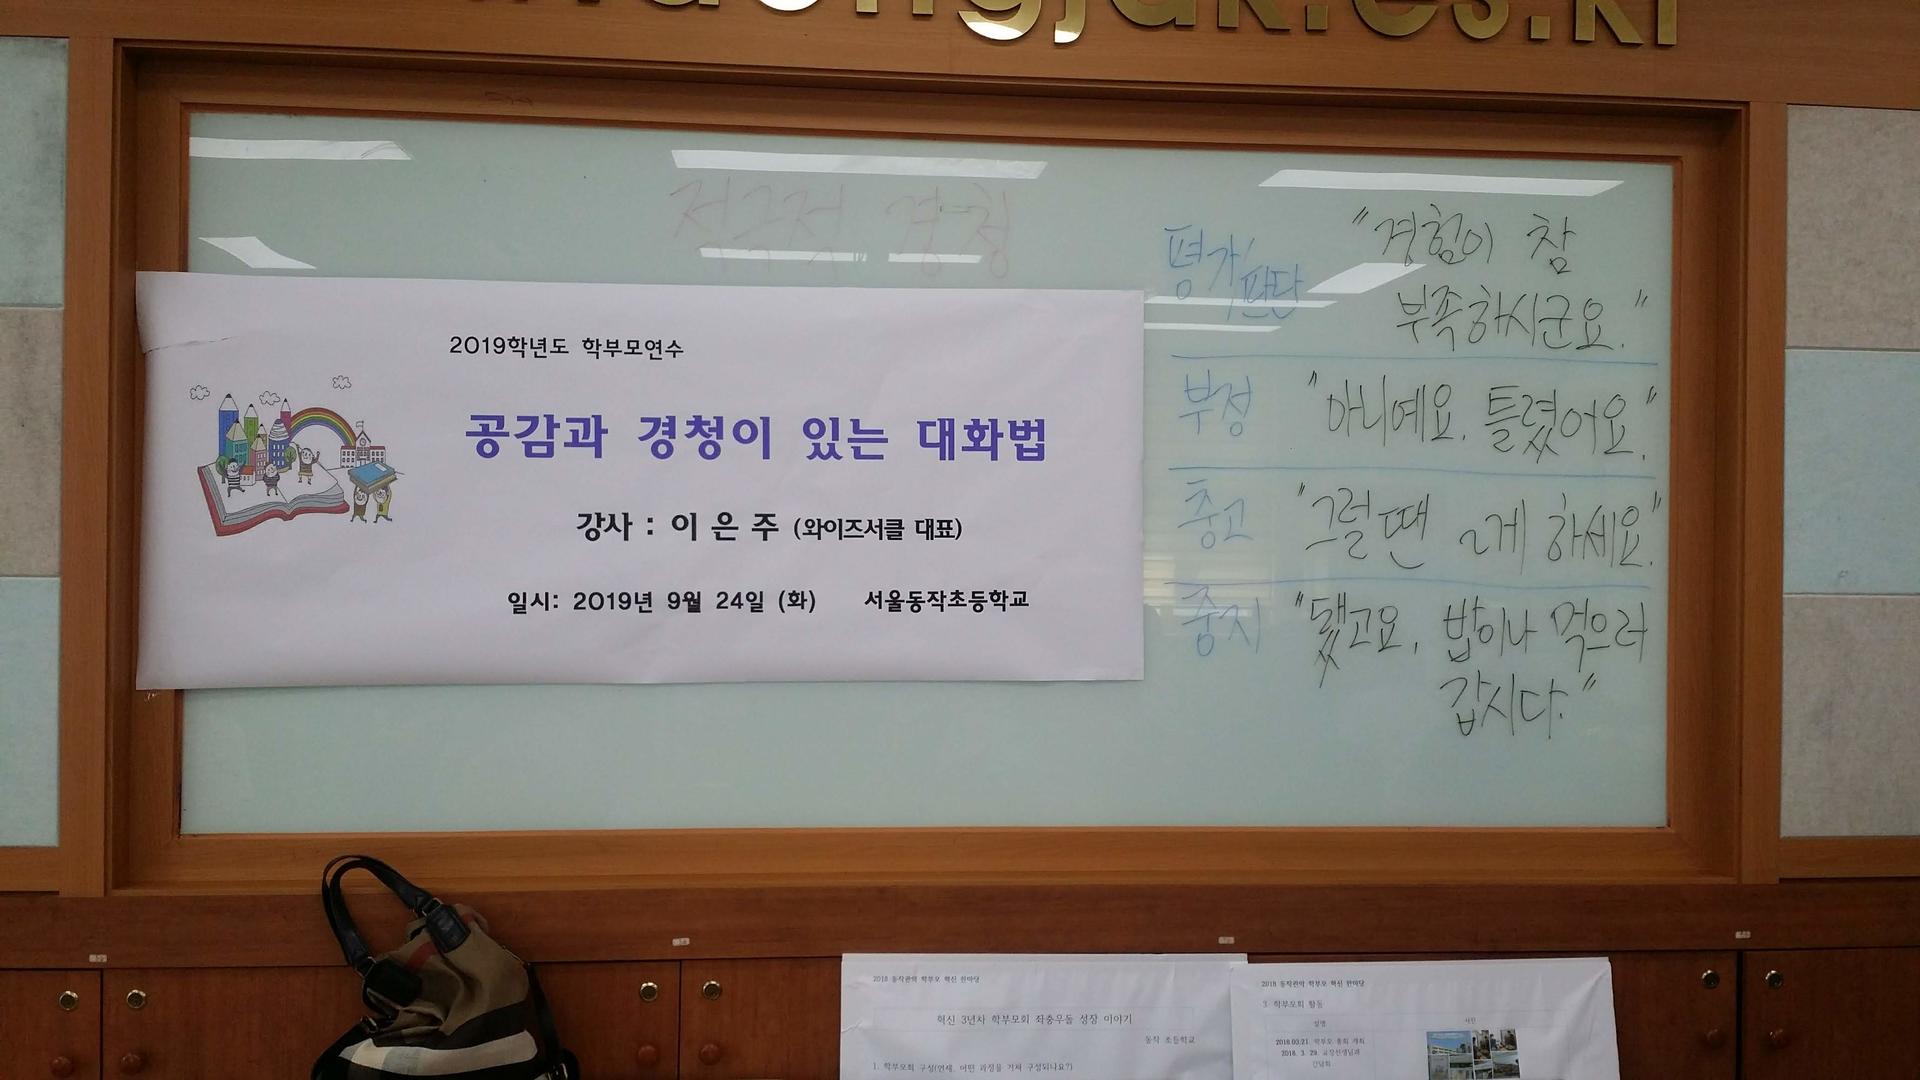 적극적 경청
2019학년도 학부모연수
공감과 경청이 있는 대화법
강사 : 이 은 주 (와이즈서클 대표)
일시: 2019년 9월 24일 (화) 서울동작초등학교
평가/판단 "경험이 참
부족하시군요."
부정 "아니예요. 틀렸어요."
충고 "그럴땐 ~게 하세요."
중지 "됐고요, 밥이나 먹으러
갑시다."
2018 동작관악 학부모 혁신 한마당
혁신 3년차 학부모회 좌충우돌 성장 이야기
동작 초등학교
1. 학부모회 구성(연세, 어떤 과정을 거쳐 구성되나요?)
2018 동작관악 학부모 혁신 한마당
3. 학부모회 활동
설명 사진
2018.03.21. 학부모 총회 개최
2018. 3. 29. 교장선생님과
간담회